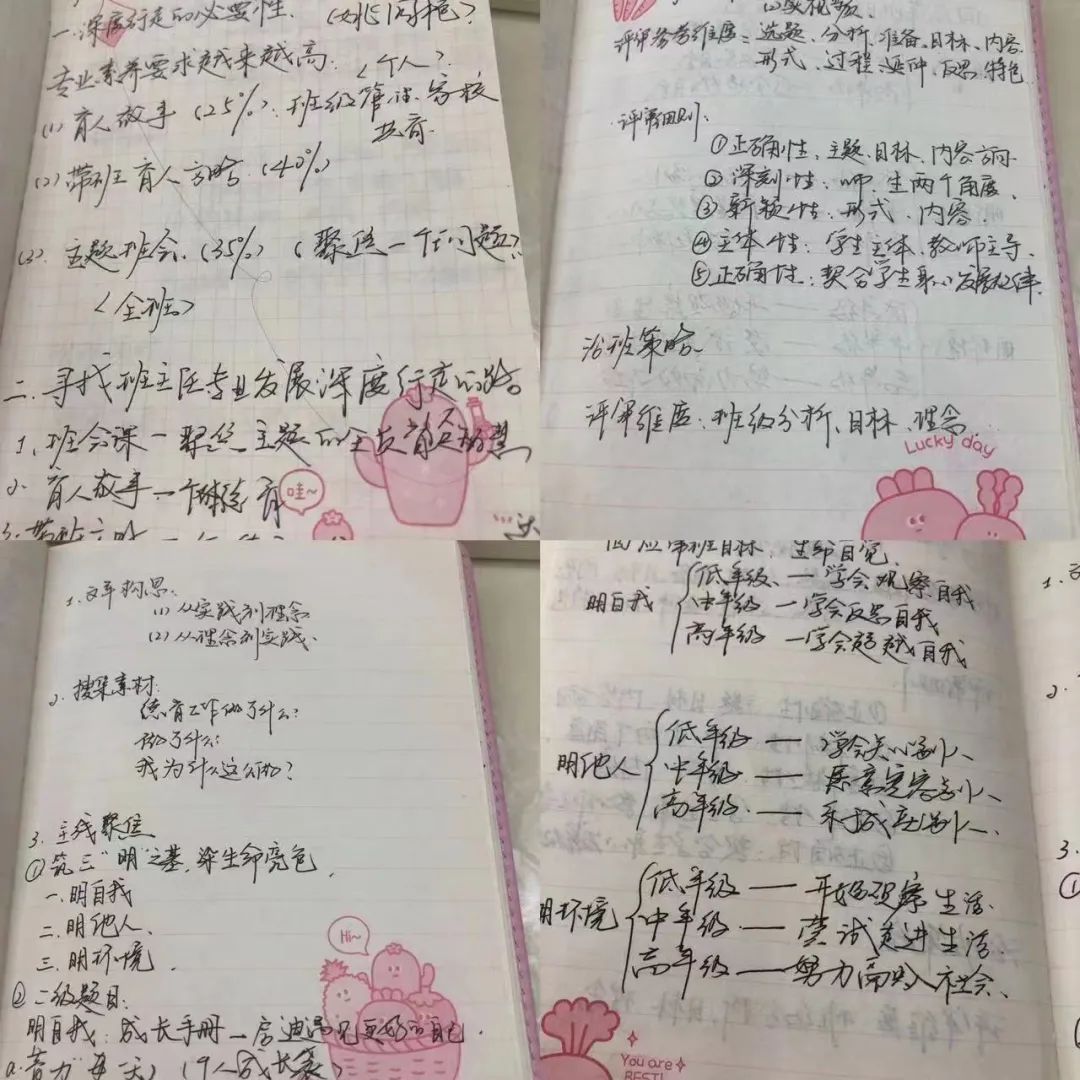 一.深度行走的必要性.
专业素养要求越来越高. <个人>.
(1) 育人故事 (25%). 班级管理. 家校
共育
(2) 带班育人方略 (40%)
(3). 主题班会. (35%) (聚焦一个问题)
<全班>
二.寻找班主任专业发展深度行走的路.
1.班会课一聚焦主题的全员
2. 育人故事一个体
哇~
评审参考维度: 选题、分析、准备、目标、内容
形式、过程、延伸、反思、特色
评审细则:
①正确性、主题、目标、内容
②深刻性、师、生两个角度.
③新颖性、形式、内容.
④主体性: 学生主体、教师主导.
⑤正确性: 契合学生身心发展规律.
治班策略.
评审维度: 班级分析、目标、理念.
Lucky day
1.文章构思:
(1) 从实践到理念
(2) 从理念到实践.
2. 搜集素材:
德育工作做了什么?
我为什么这么做?
3. 主线聚焦
①筑三“明”之基,深生命亮色.
一.明自我
二.明他人.
三.明环境.
②二级题目:
明自我: 成长手册一遇见更好的自己.
Hi~
明自我
低年级. — 学会观察自我
中年级 — 学会反思自我
高年级 — 学会超越自我
明他人
低年级 — 学会关心别人、
中年级. — 愿意宽容别人、
高年级. — 乐于成就别人.
明环境
低年级 — 开始观察生活.
中年级 — 尝试走进生活.
高年级 — 努力融入社会、
You are
BEST!